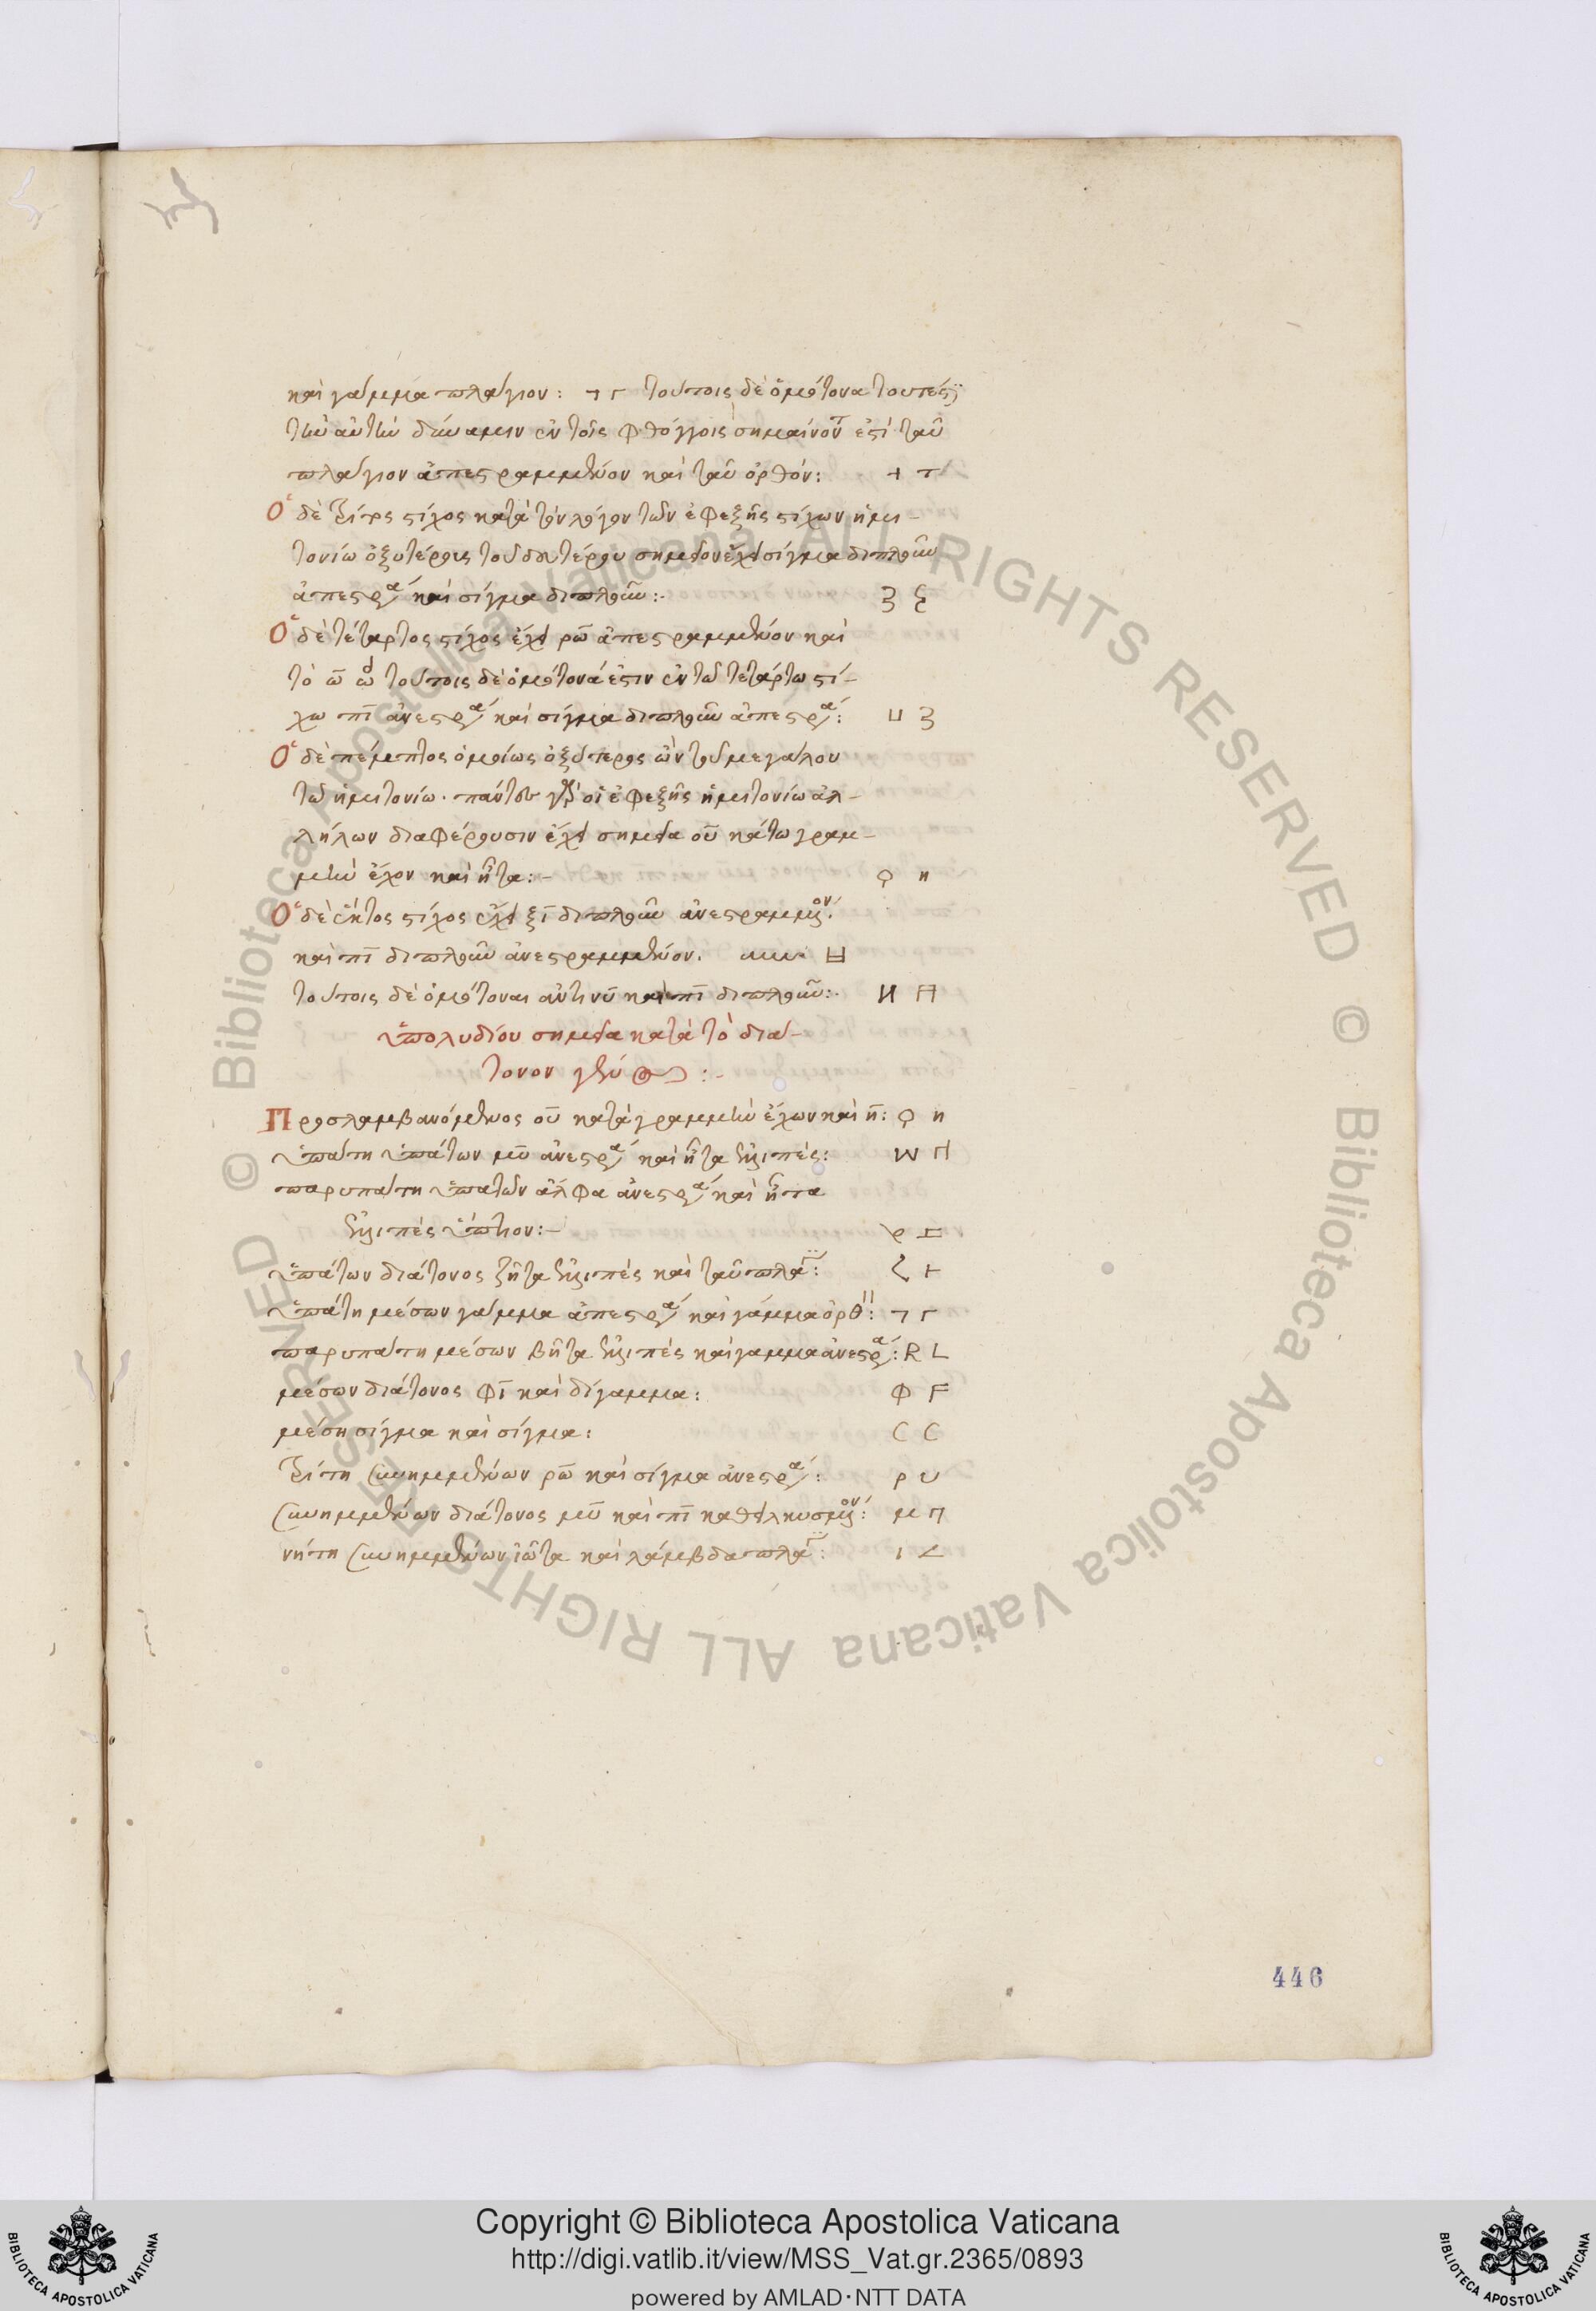 καὶ γάμμα πλάγιον: ⅂ Γ τούτοις δὲ ὁμότονα τουτέστι
τὴν αὐτὴν δύναμιν ἐν τοῖς φθόγγοις σημαίνοντ ἐστὶ ταῦ
πλάγιον ἀπεστραμμένον καὶ ταῦ ὀρθόν: ⊣ Τ
Ὁ δὲ τρίτος στίχος κατὰ τὸν λόγον τῶν ἐφεξῆς στίχων ἡμι-
τονίω ὀξυτέροις τοῦ δευτέρου σημεῖον ἔχει σίγμα διπλοῦν
ἀπεστρα καὶ σίγμα διπλοῦν:
Ὁ δὲ τέταρτος στίχος ἔχει ρῶ ἀπεστραμμένον καὶ
τὸ ω τούτοις δὲ ὁμότονά ἐστιν ἐν τῶ τετάρτω στί-
χω πῖ ἀνεστρα καὶ σίγμα διπλοῦν ἀπεστρα:
Ὁ δὲ πέμπτος ὁμοίως ὀξύτερος ὢν τοῦ μεγάλου
τῶ ἡμιτονίω. πάντες γὰρ οἱ ἐφεξῆς ἡμιτονίω ἀλ-
λήλων διαφέρουσιν ἔχει σημεῖα οὖ κάτω γραμ-
μὴν ἔχον καὶ ἦτα:-
Ὁ δὲ ἕκτος στίχος ἔχει ξῖ διπλοῦν ἀνεστραμμένον:
καὶ πῖ διπλοῦν ἀνεστραμμένον.
τούτοις δὲ ὁμότονα ἀντινῦ καὶ πῖ διπλοῦν:
ὑπολυδίου σημεῖα κατὰ τὸ διά-
τονον γένος:-
Προσλαμβανόμενος οὖ κατὰ γραμμὴν ἔχων καὶ η:
ὑπάτη ὑπάτων μῦ ἀνεστρα καὶ ἦτα ἐλλιπές:
παρυπάτη ὑπατῶν ἄλφα ἀνεστρα καὶ ἦτα
ἐλλιπὲς ὕπτιον:-
ὑπάτων διάτονος ζῆτα ἐλλιπὲς καὶ ταῦ πλα:
ὑπάτη μέσων γάμμα ἀπεστρα καὶ γάμμα ὀρθ: ⅂ Γ
παρυπάτη μέσων βῆτα ἐλλιπὲς καὶ γάμμα ἀνεστρα: R L
μέσων διάτονος φῖ καὶ δίγαμμα: Φ F
μέση σίγμα καὶ σίγμα: C C
τρίτη συνημμένων ρῶ καὶ σίγμα ἀνεστρα: ρ υ
συνημμένων διάτονος μῦ καὶ πῖ καθειλκυσμένον: μ π
νήτη συνημμένων ἰῶτα καὶ λάμβδα πλα: ι <
446
© Biblioteca Apostolica Vaticana ALL RIGHTS RESERVED © Biblioteca Apostolica Vaticana ALL RIGHTS RESERVED
Copyright © Biblioteca Apostolica Vaticana
http://digi.vatlib.it/view/MSS_Vat.gr.2365/0893
powered by AMLAD·NTT DATA
BIBLIOTECA APOSTOLICA VATICANA
BIBLIOTECA APOSTOLICA VATICANA